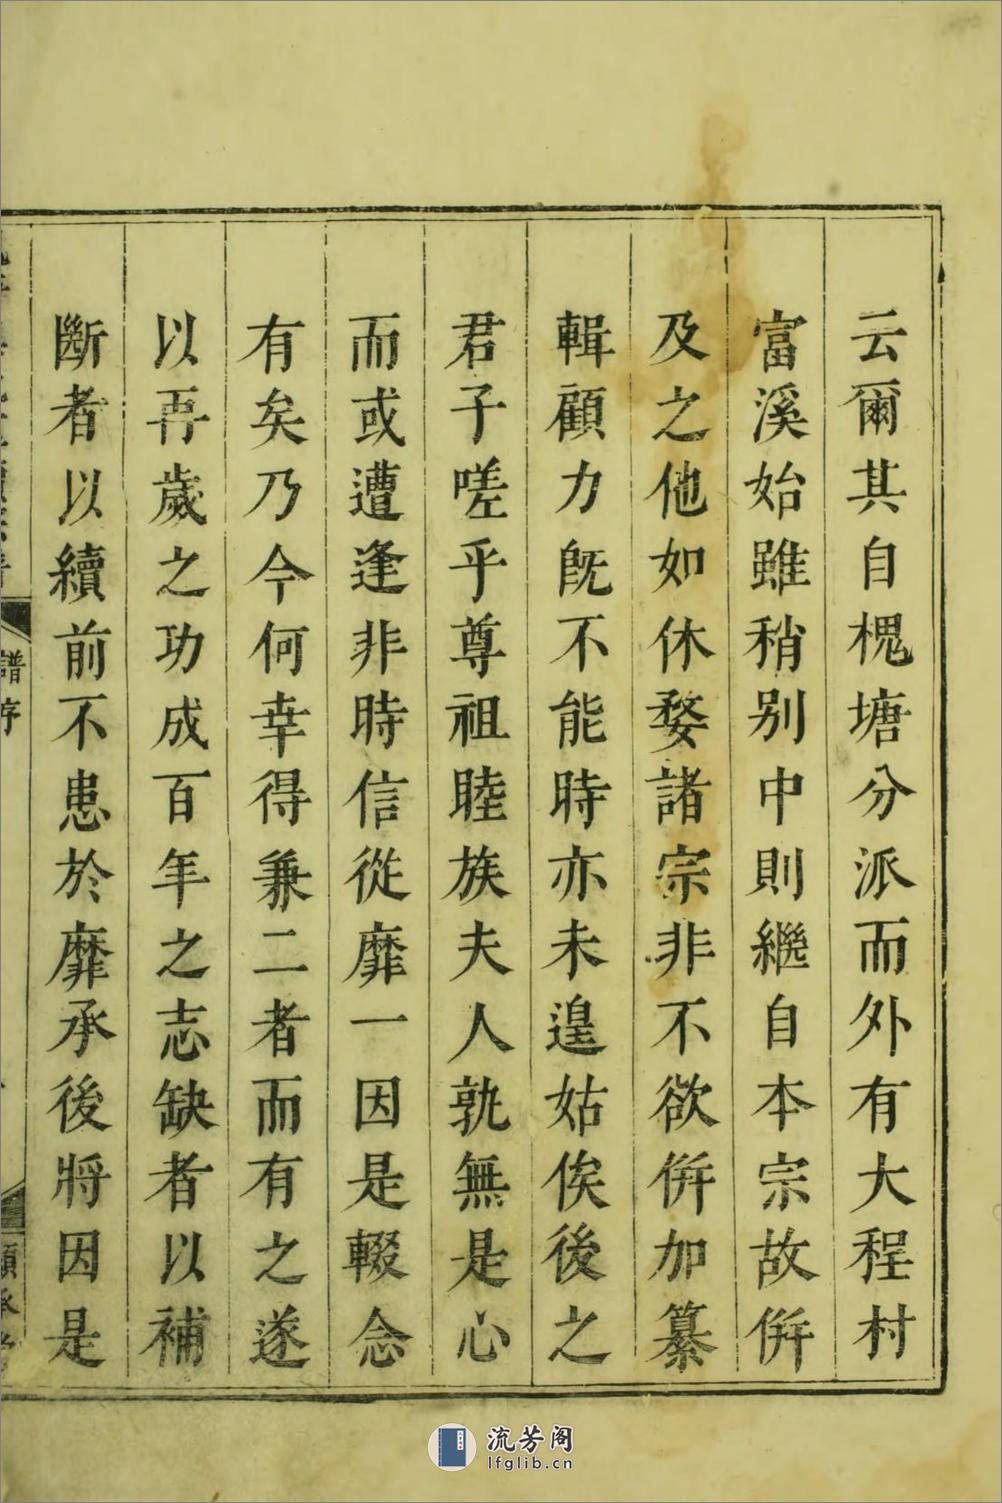 云爾其自槐塘分派而外有大程村
富溪始雖稍别中則繼自本宗故倂
及之他如休婺諸宗非不欲倂加纂
輯顧力旣不能時亦未遑姑俟後之
君子嗟乎尊祖睦族夫人孰無是心
而或遭逢非時信從靡一因是輟念
有矣乃今何幸得兼二者而有之遂
以再歲之功成百年之志缺者以補
斷者以續前不患於靡承後將因是
譜序
流芳阁
lfglib.cn